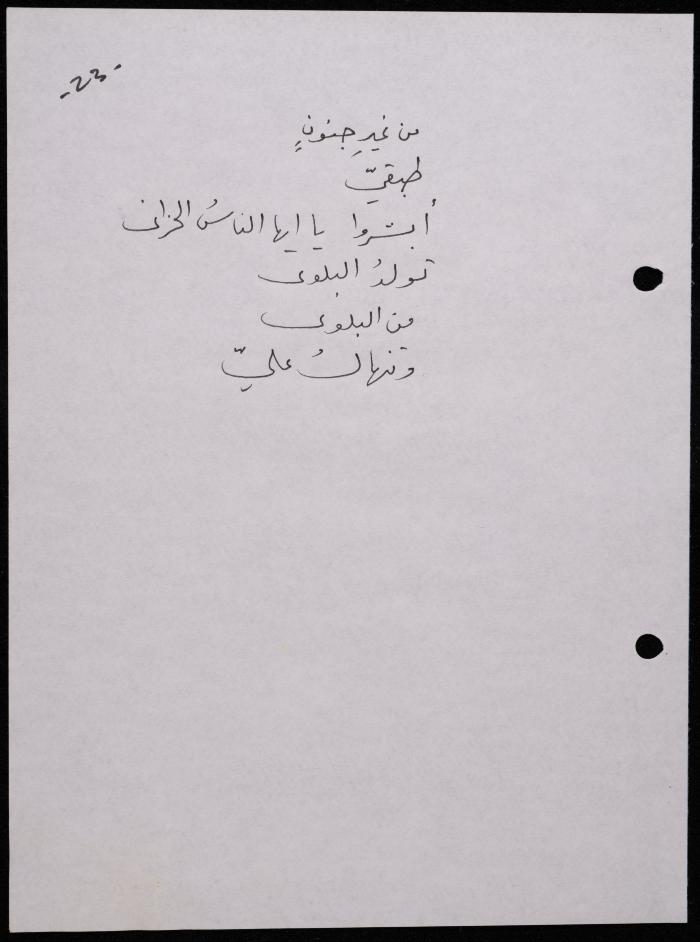 -23-
من غيرِ جنونٍ
طبقيّ
أبشروا يا ايها الناسُ الحزانى
تولدُ البلوى
من البلوى
وتنهالُ عليّ